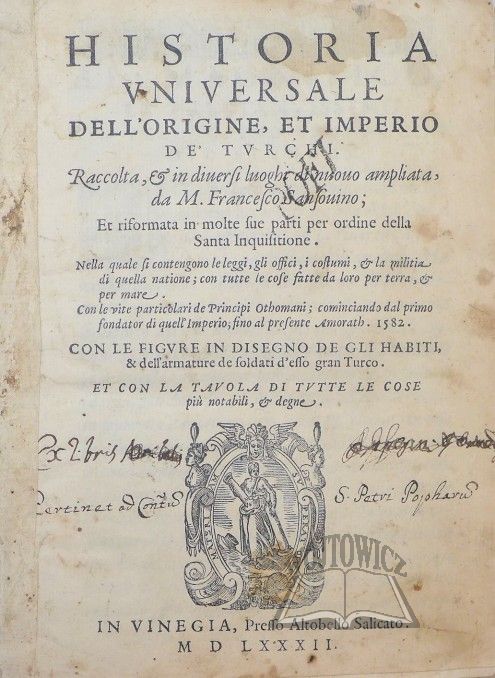 HISTORIA
VNIVERSALE
DELL'ORIGINE, ET IMPERIO
DE' TVRCHI.
Raccolta, & in diuersi luoghi di nuouo ampliata,
da M. Francesco Sansouino;
Et riformata in molte sue parti per ordine della
Santa Inquisitione.
Nella quale si contengono le leggi, gli offici, i costumi, & la militia
di quella natione; con tutte le cose fatte da loro per terra, &
per mare.
Con le vite particolari de Principi Othomani; cominciando dal primo
fondator di quell'Imperio, fino al presente Amorath. 1582.
CON LE FIGVRE IN DISEGNO DE GLI HABITI,
& dell'armature de soldati d'esso gran Turco.
ET CON LA TAVOLA DI TVTTE LE COSE
più notabili, & degne.
Ex libris
Pertinet ad S. Petri
IN VINEGIA, Presso Altobello Salicato.
M D LXXXII.